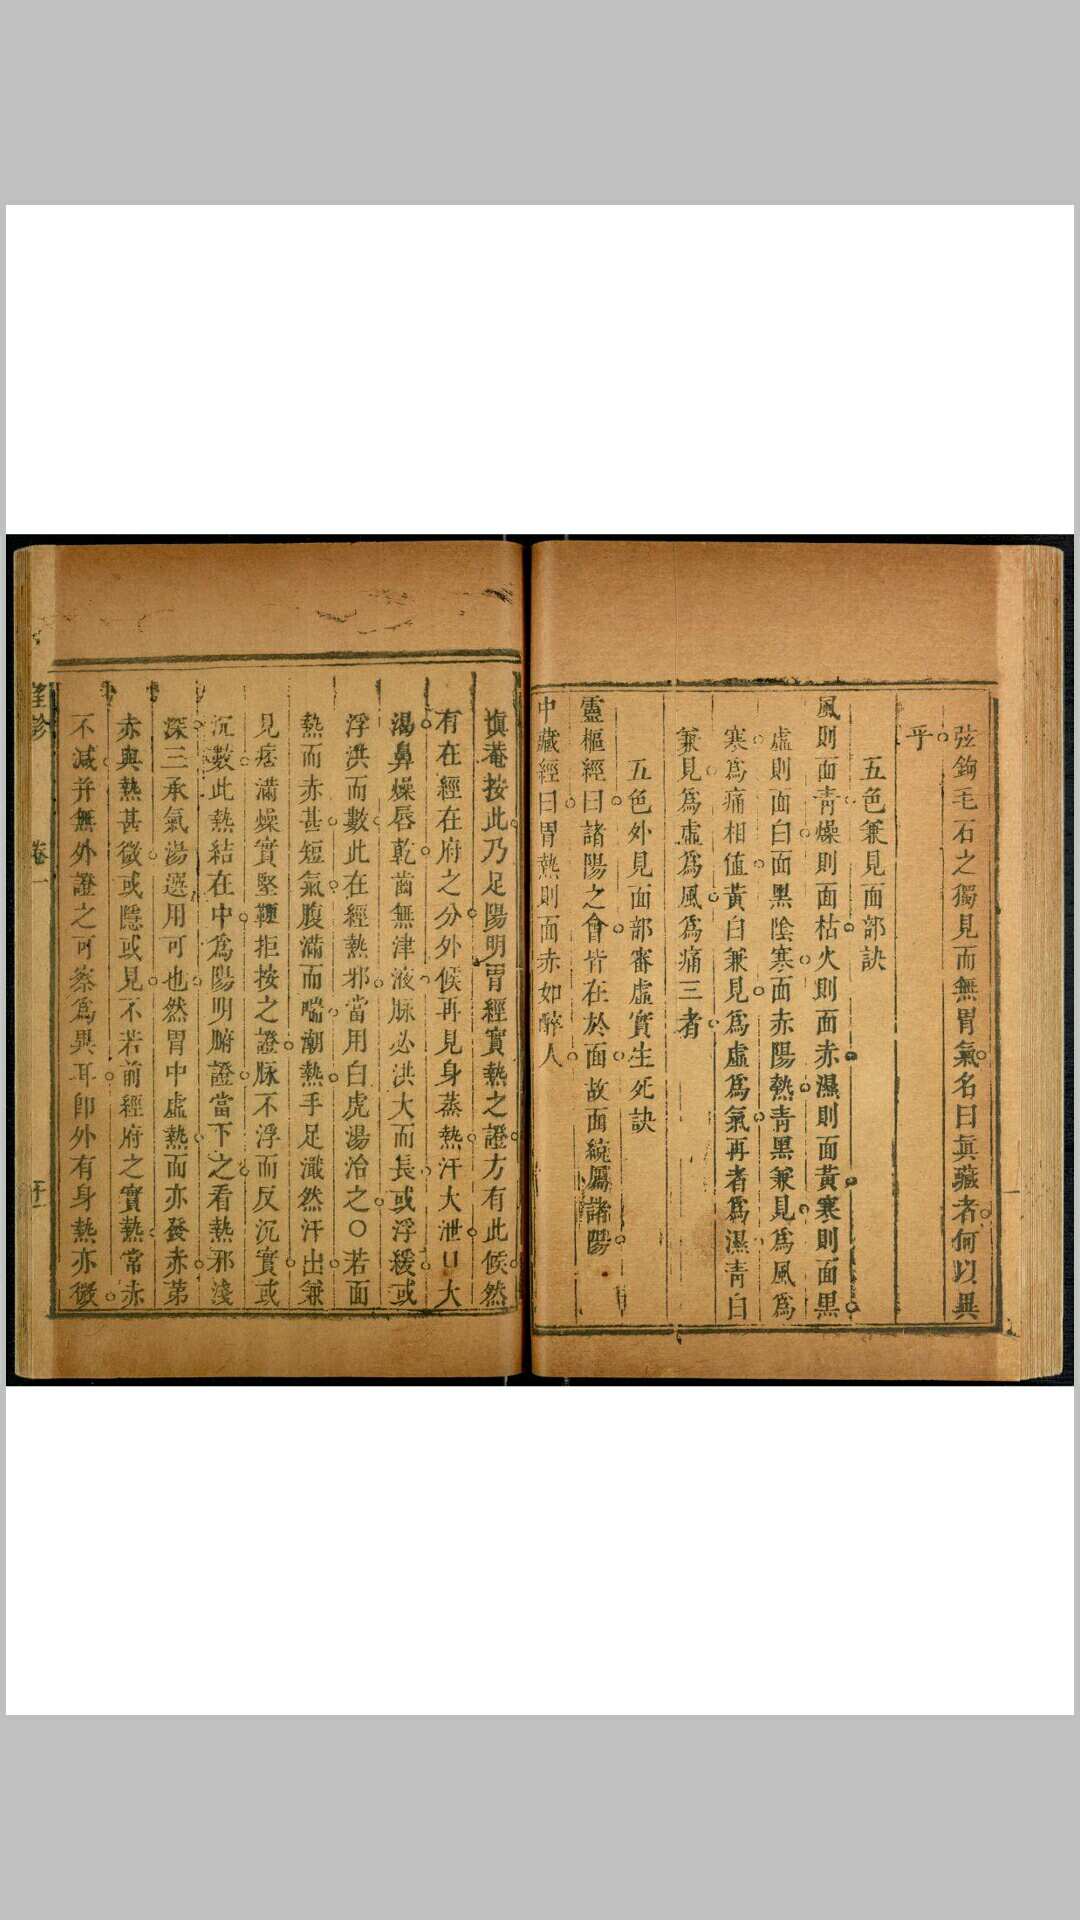 弦鉤毛石之獨見而無胃氣名曰眞藏者何以異
乎
五色兼見面部訣
風則面靑燥則面枯火則面赤濕則面黃寒則面黑
虛則面白面黑陰寒面赤陽熱靑黑兼見爲風爲
寒爲痛相值黃白兼見爲虛爲氣再者爲濕靑白
兼見爲虛爲風爲痛三者
五色外見面部審虛實生死訣
靈樞經曰諸陽之會皆在於面故面統屬諸陽
中藏經曰胃熱則面赤如醉人
愼菴按此乃足陽明胃經實熱之證方有此候然
有在經在府之分外候再見身蒸熱汗大泄口大
渴鼻燥唇乾齒無津液脉必洪大而長或浮緩或
浮洪而數此在經熱邪當用白虎湯治之○若面
熱而赤甚短氣腹滿而喘潮熱手足濈然汗出兼
見痞滿燥實堅鞕拒按之證脉不浮而反沉實或
沉數此熱結在中爲陽明腑證當下之看熱邪淺
深三承氣湯選用可也然胃中虛熱而亦發赤第
赤與熱甚微或隱或見不若前經府之實熱常赤
不減并無外證之可察爲異耳卽外有身熱亦微
望診
卷一